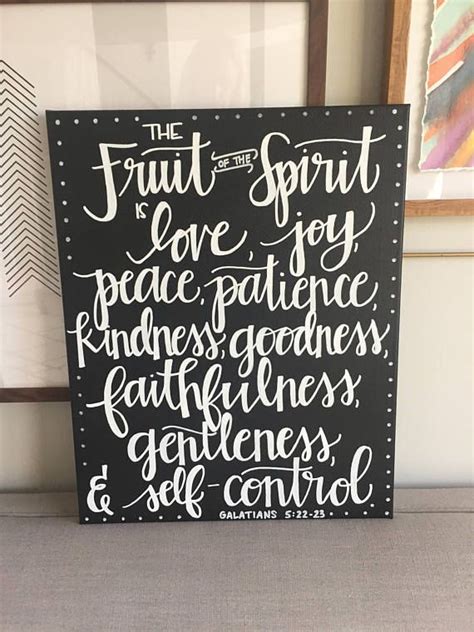 THE
Fruit OF THE Spirit
is
love, joy,
peace, patience,
kindness, goodness,
faithfulness,
gentleness,
& self-control
GALATIANS 5:22-23